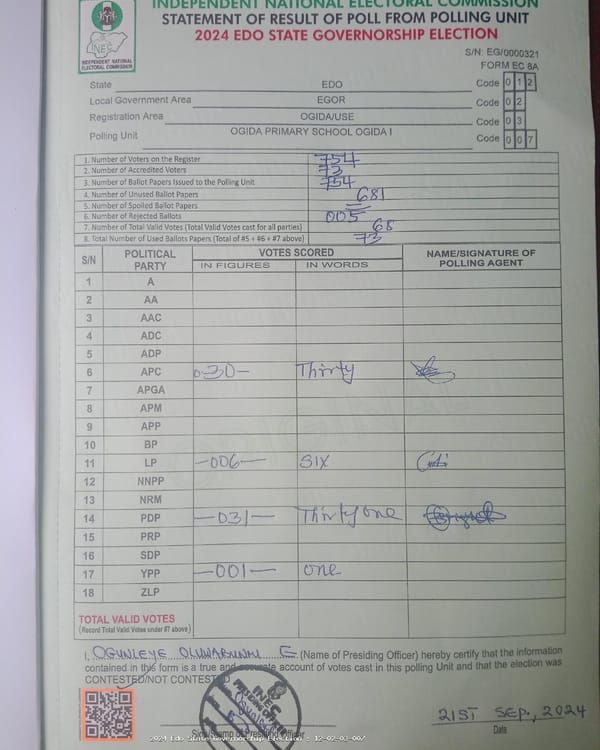 INDEPENDENT NATIONAL ELECTORAL COMMISSION
STATEMENT OF RESULT OF POLL FROM POLLING UNIT
2024 EDO STATE GOVERNORSHIP ELECTION
INEC
INDEPENDENT NATIONAL
ELECTORAL COMMISSION
S/N: EG/0000321
FORM EC 8A
State EDO Code 0 1 2
Local Government Area EGOR Code 0 2
Registration Area OGIDA/USE Code 0 3
Polling Unit OGIDA PRIMARY SCHOOL OGIDA I Code 0 0 7
1. Number of Voters on the Register 754
2. Number of Accredited Voters 73
3. Number of Ballot Papers Issued to the Polling Unit 754
4. Number of Unused Ballot Papers 681
5. Number of Spoiled Ballot Papers
6. Number of Rejected Ballots 005
7. Number of Total Valid Votes (Total Valid Votes cast for all parties) 68
8. Total Number of Used Ballots Papers (Total of #5 + #6 + #7 above) 73
S/N POLITICAL PARTY VOTES SCORED NAME/SIGNATURE OF POLLING AGENT
IN FIGURES IN WORDS
1 A
2 AA
3 AAC
4 ADC
5 ADP
6 APC 030- Thirty
7 APGA
8 APM
9 APP
10 BP
11 LP -006- SIX
12 NNPP
13 NRM
14 PDP -031- Thirty one
15 PRP
16 SDP
17 YPP -001- one
18 ZLP
TOTAL VALID VOTES
(Record Total Valid Votes under #7 above)
I, OGUNLEYE OLUWABUNMI E (Name of Presiding Officer) hereby certify that the information
contained in this form is a true and accurate account of votes cast in this polling Unit and that the election was
CONTESTED/NOT CONTESTED
INEC
21ST SEP., 2024
Date
2024 Edo State Governorship Election - 12-02-03-007